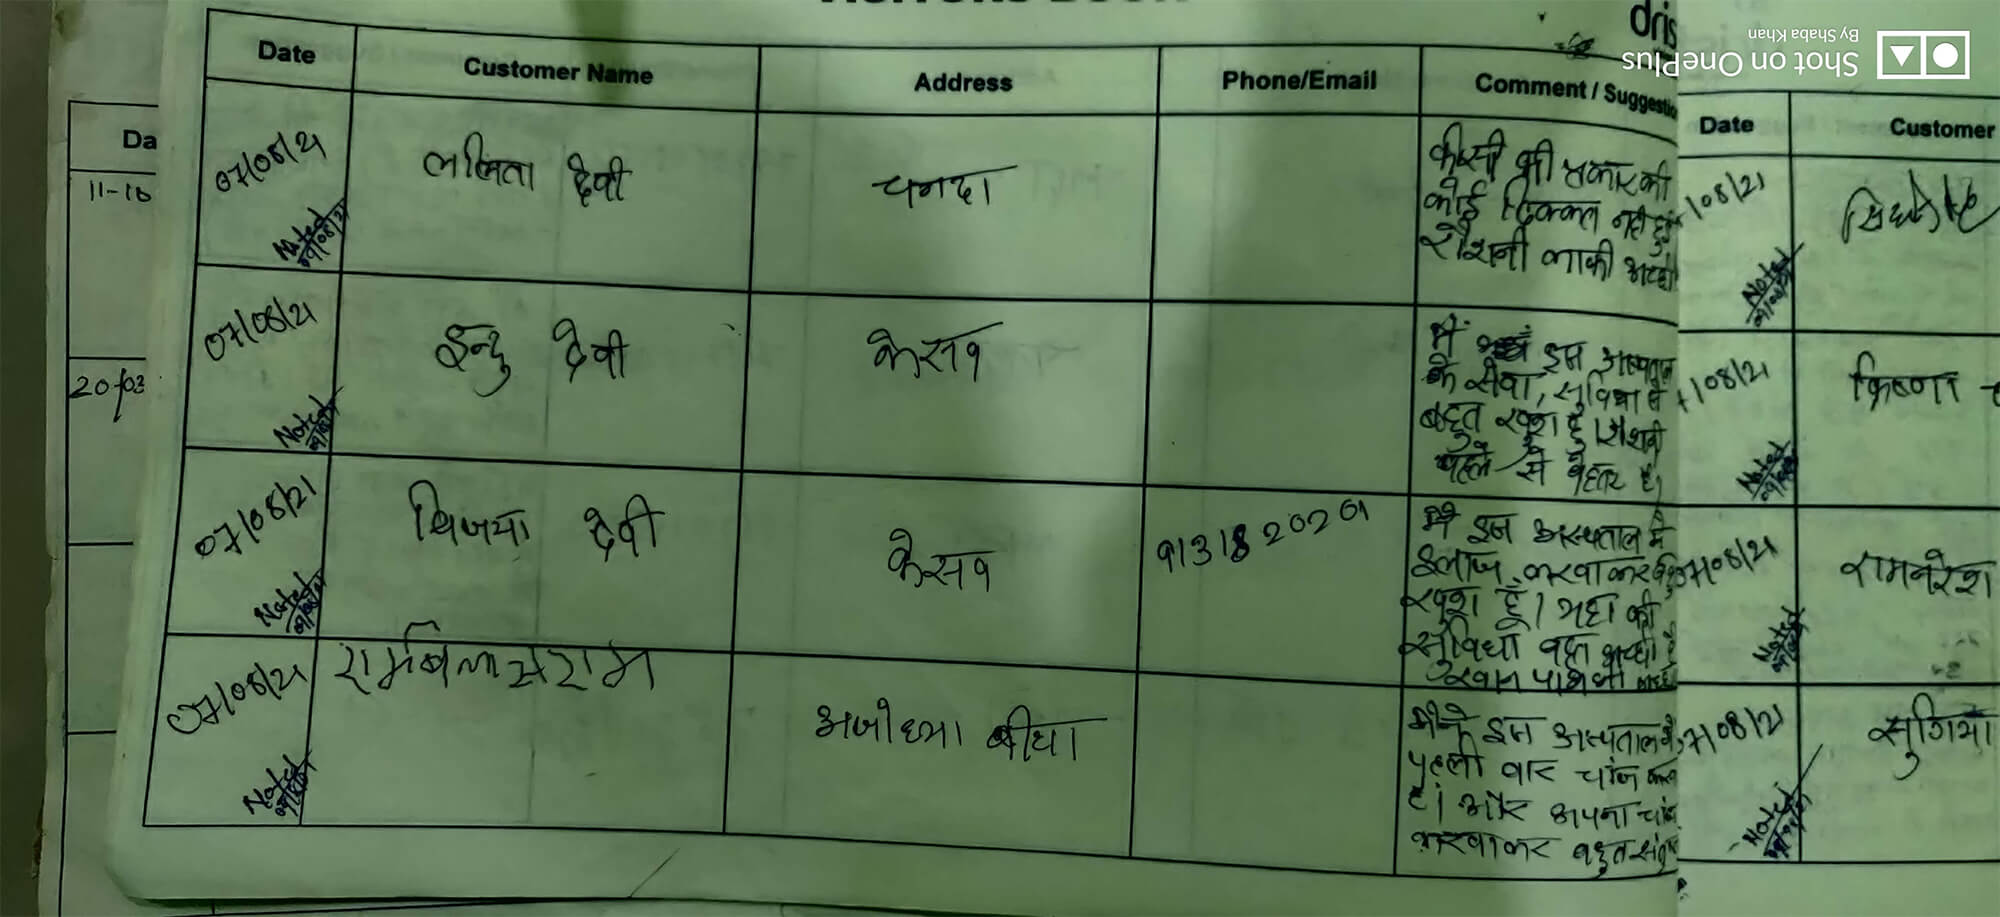 dris
Shot on OnePlus
By Shaba Khan
Date Customer Name Address Phone/Email Comment / Suggestio
07/08/21 ललिता देवी चनदा
किसी भी प्रकार की
कोई दिक्कत नही हुई
रोशनी काफी अच्छी
Noted
09/08/21
07/08/21 इन्दु देवी केसप
में इस अस्पताल
के सेवा, सुविधा से
बहुत खुश हूँ। रोशनी
पहले से बेहतर है।
Noted
07/08/21 विजया देवी केसप 9131820201
में इस अस्पताल में
इलाज करवाकर
खुश हूँ। यहा की
सुविधा बहुत अच्छी है
Noted
07/08/21 रामबिलास राम अजोध्या बीघा
मैने इस अस्पताल मे
पहली बार चांज
है। और अपना चांज
करवाकर बहुत
Noted
Da
11-10
20/03
Date Customer
/08/21
Noted
/08/21 क्रिष्णा
Noted
07/08/21 रामनरेश
Noted
7/08/21 सुगिया
Noted